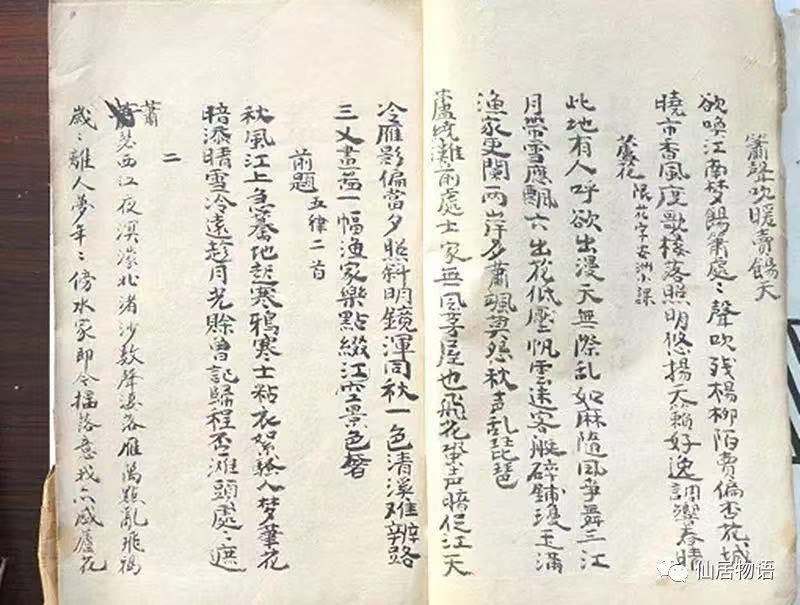 簫聲吹暖賣餳天
欲喚江南夢餳簫處〻聲吹殘楊柳陌賣偏杏花城
曉市香風度歌樓落照明悠揚天籟好逸調響春晴
蘆花 限花字安洲小課
此地有人呼欲出漫天無際乱如麻隨風爭舞三江
月帶雪應飄六出花低壓帆雲迷客艇碎鋪瓊玉滿
漁家更闌兩岸多蕭颯莫怨秋声乱琵琶
蘆繞灘前處士家無風茅屋也飛花蛩声暗促江天
冷雁影偏當夕照斜明鏡渾同秋一色清溪难辨路
三义畫啚一幅漁家樂點綴江空景色奢
前題 五律二首
秋風江上急驀地起寒鴉寒士粘衣絮騷人梦筆花
暗添晴雪冷遠趁月光賒曾記歸程否灘頭處〻遮
二
蕭瑟西江夜溟濛北渚沙数聲凄落雁萬點亂飛鴉
歲〻離人夢年〻傍水家即今搖落意我亦感蘆花
仙居物语